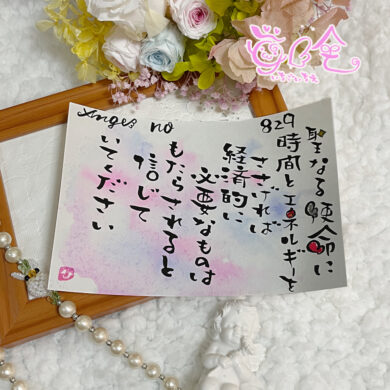 Angel no
829
聖なる使命に
時間とエネルギーを
ささげれば
経済的に
必要なものは
もたらされると
信じて
いてください